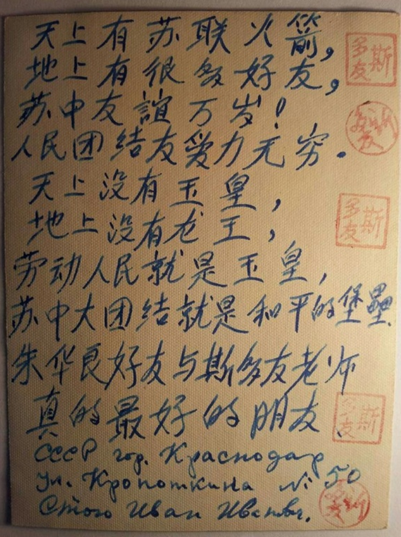 天上有苏联火箭,
地上有很多好友,
苏中友誼万岁!
人民团结友爱力无穷。
天上没有玉皇,
地上没有龙王,
劳动人民就是玉皇,
苏中大团结就是和平的堡壘
朱华良好友与斯多友老师
真的最好的朋友
СССР гор. Краснодар
ул. Кропоткина № 50
Стого Иван Иванвч.
斯多友
斯多友
斯多友